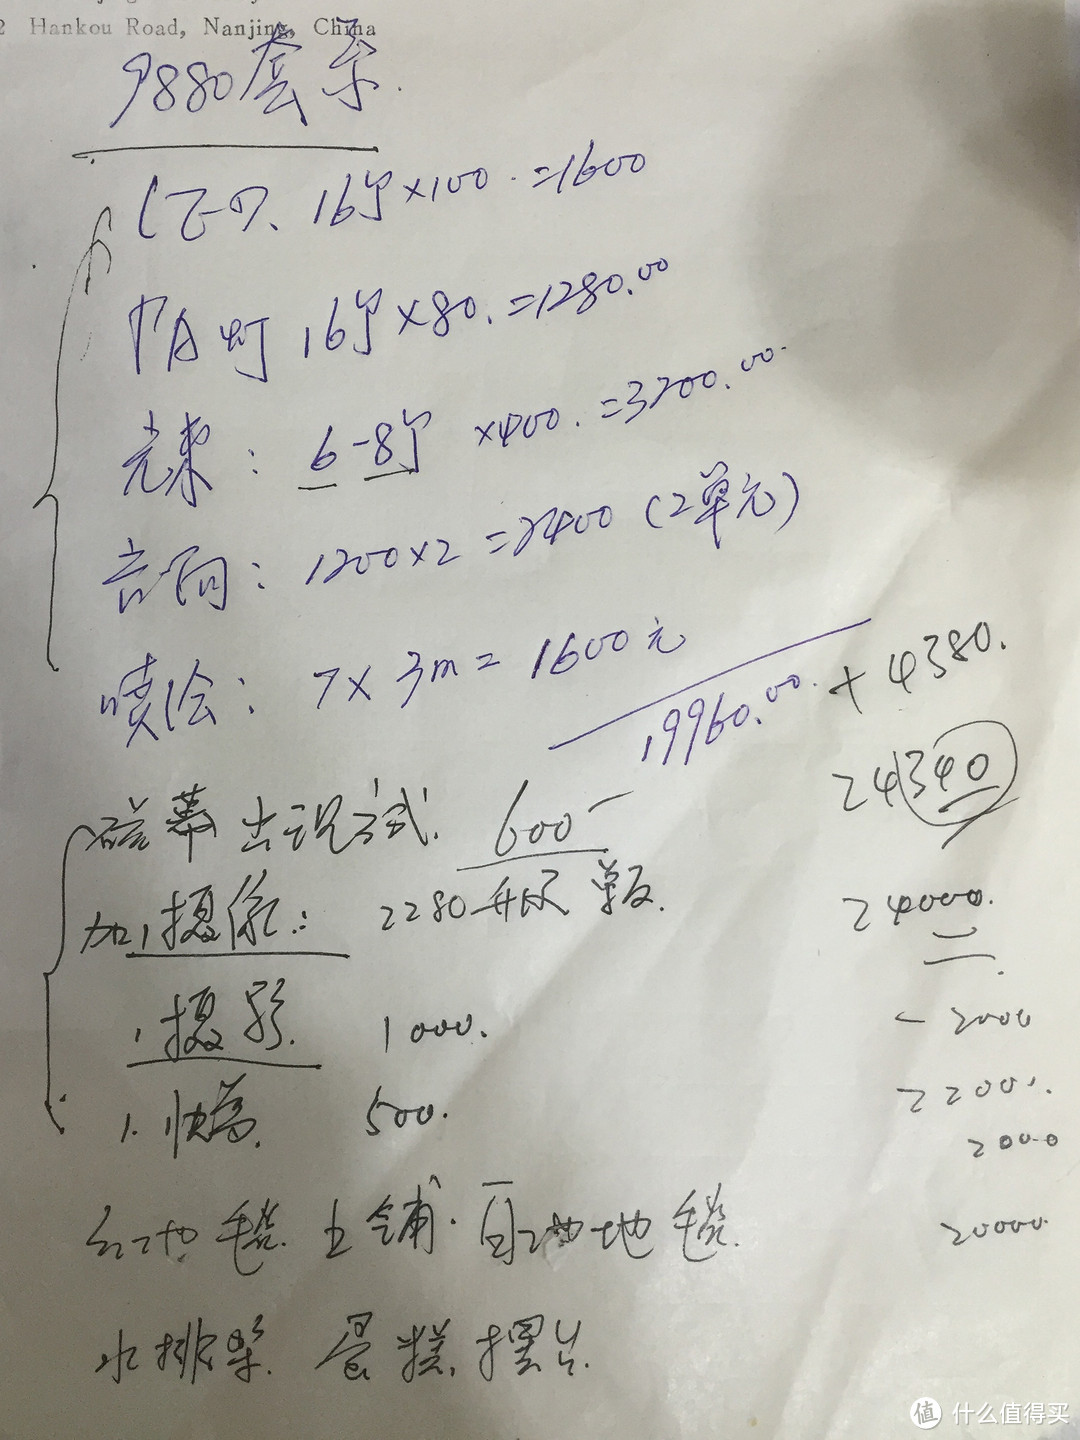 2 Hankou Road, Nanjing, China
9880套系.
LED、16个×100.=1600
PA灯 16个×80.=1280.00
光束: 6-8个 ×400.=3200.00.
音响: 1200×2=2400 (2单元)
喷绘: 7×3m=1600元
19960.00. + 4380.
24340
幕出现方式. 600
加1摄像: 2280 单反.
24000.
- 2000
1摄影. 1000.
22001.
1. 快荐. 500.
2000
红地毯. 上铺. 自动地毯.
20000.
水排架. 蛋糕. 摆台.
值 什么值得买